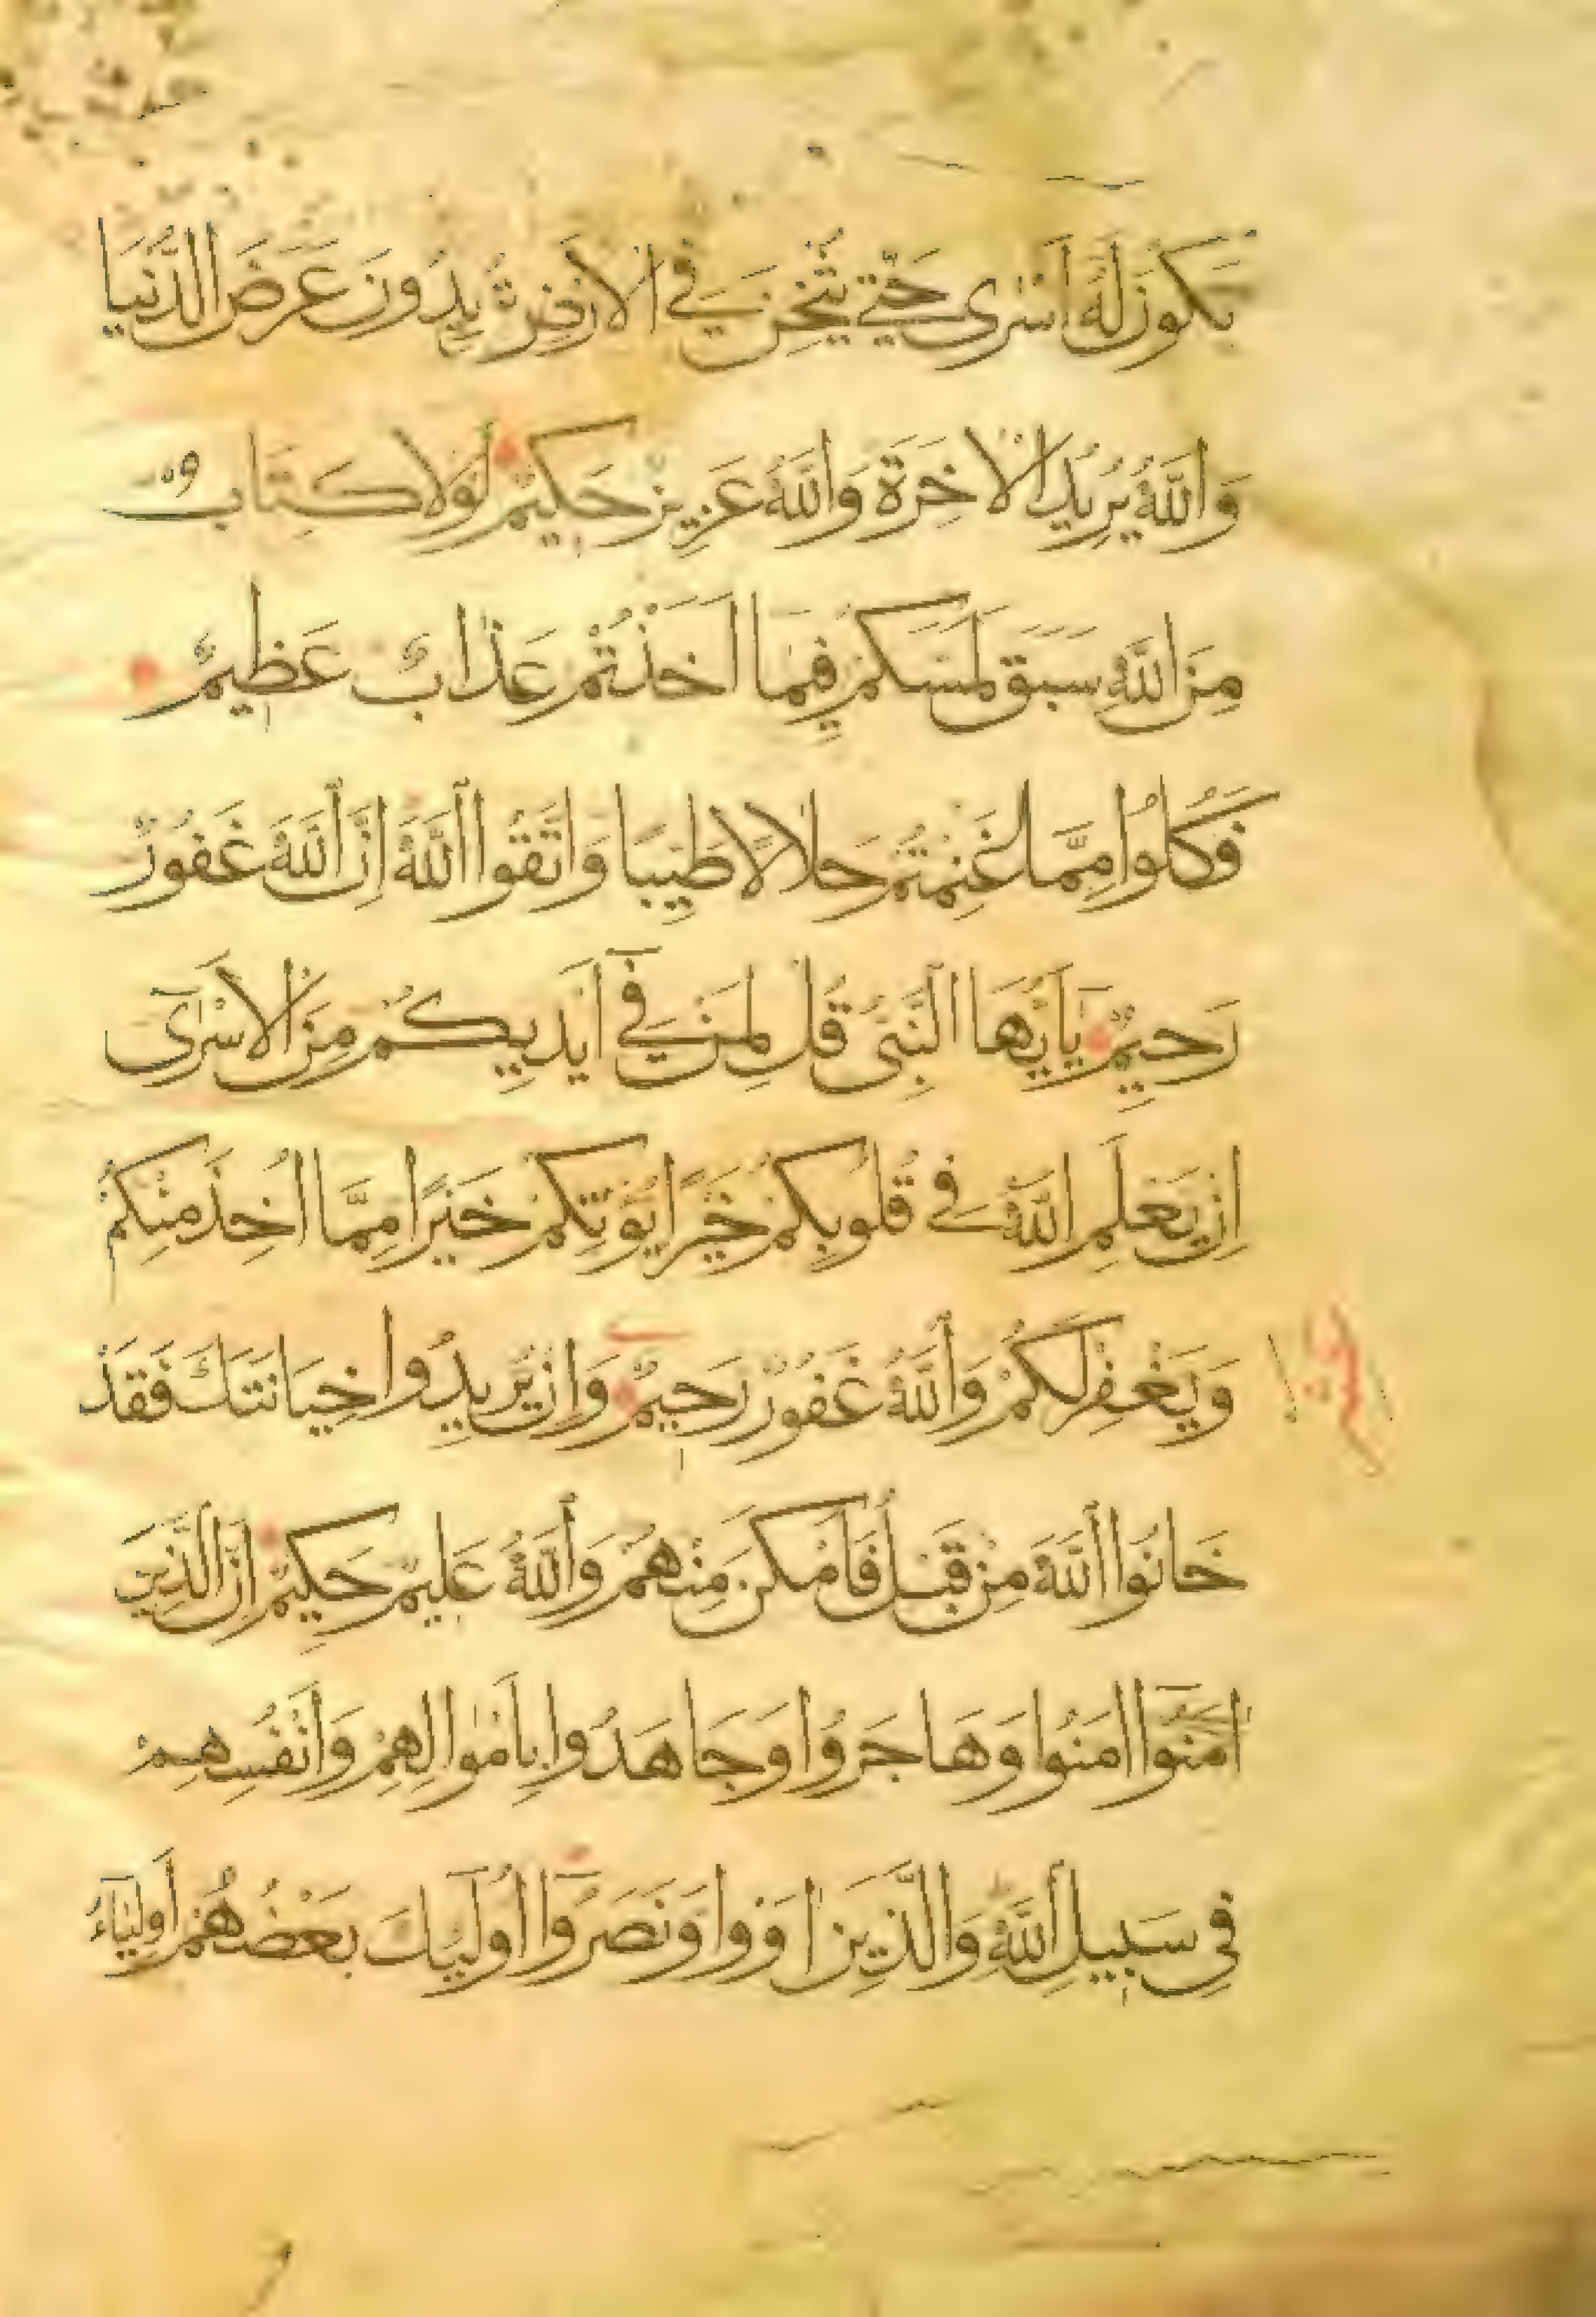 يَكُونَ لَهُ أَسْرَى حَتَّى يُثْخِنَ فِي الْأَرْضِ تُرِيدُونَ عَرَضَ الدُّنْيَا
وَاللَّهُ يُرِيدُ الْآخِرَةَ وَاللَّهُ عَزِيزٌ حَكِيمٌ لَوْلَا كِتَابٌ
مِنَ اللَّهِ سَبَقَ لَمَسَّكُمْ فِيمَا أَخَذْتُمْ عَذَابٌ عَظِيمٌ
فَكُلُوا مِمَّا غَنِمْتُمْ حَلَالًا طَيِّبًا وَاتَّقُوا اللَّهَ إِنَّ اللَّهَ غَفُورٌ
رَحِيمٌ يَا أَيُّهَا النَّبِيُّ قُلْ لِمَنْ فِي أَيْدِيكُمْ مِنَ الْأَسْرَى
إِنْ يَعْلَمِ اللَّهُ فِي قُلُوبِكُمْ خَيْرًا يُؤْتِكُمْ خَيْرًا مِمَّا أُخِذَ مِنْكُمْ
وَيَغْفِرْ لَكُمْ وَاللَّهُ غَفُورٌ رَحِيمٌ وَإِنْ يُرِيدُوا خِيَانَتَكَ فَقَدْ
خَانُوا اللَّهَ مِنْ قَبْلُ فَأَمْكَنَ مِنْهُمْ وَاللَّهُ عَلِيمٌ حَكِيمٌ إِنَّ الَّذِينَ
آمَنُوا امَنُوا وَهَاجَرُوا وَجَاهَدُوا بِأَمْوَالِهِمْ وَأَنْفُسِهِمْ
فِي سَبِيلِ اللَّهِ وَالَّذِينَ اوَوا وَنَصَرُوا أُولَئِكَ بَعْضُهُمْ أَوْلِيَاءُ